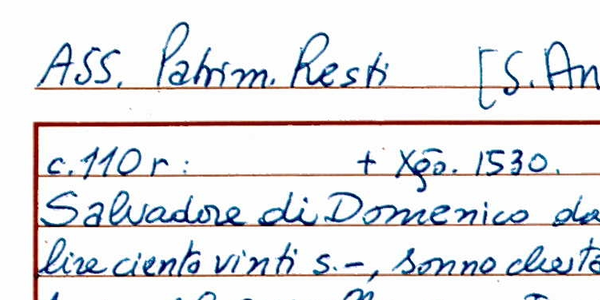 ASS. Patrim. Resti [S. An
c. 110 r: + Xṗo. 1530.
Salvadore di Domenico da
lire ciento vinti s. -, sonno cheste